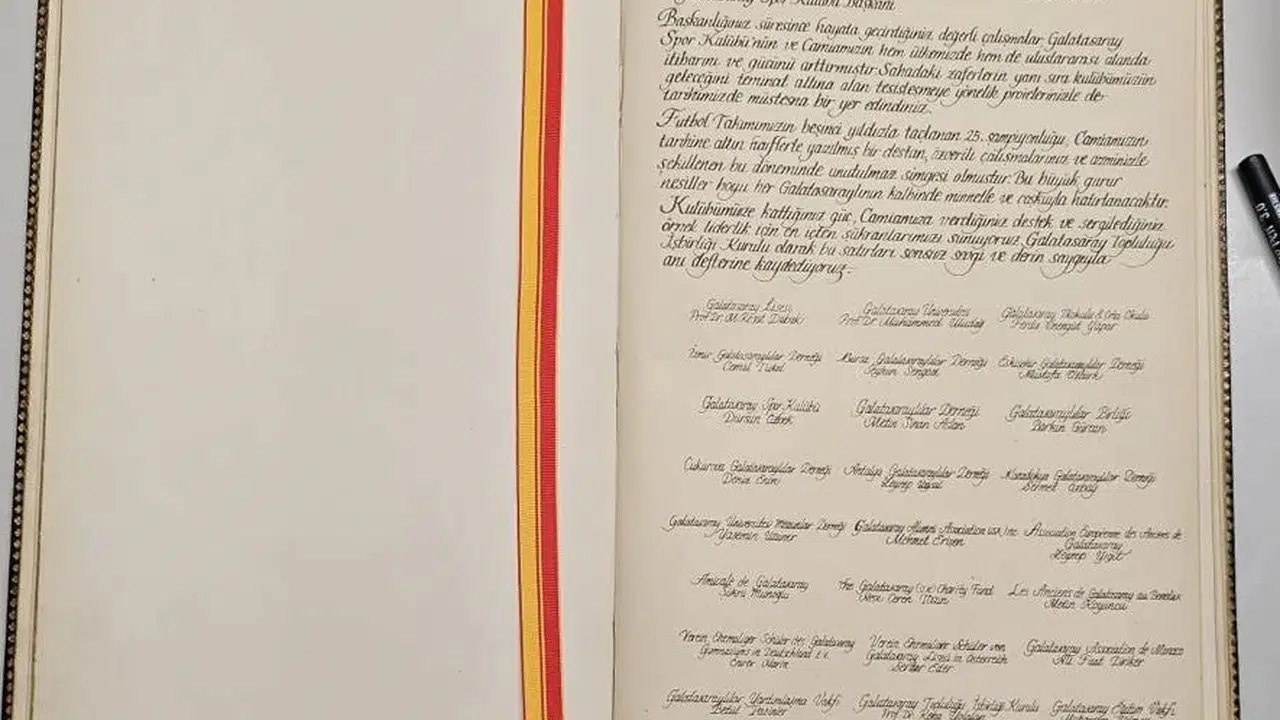 Galatasaray Spor Kulübü Başkanı
Başkanlığınız süresince hayata geçirdiğiniz değerli çalışmalar, Galatasaray
Spor Kulübü'nün ve Camiamızın hem ülkemizde hem de uluslararası alanda
itibarını ve gücünü arttırmıştır. Sahadaki zaferlerin yanı sıra kulübümüzün
geleceğini teminat altına alan tesisleşmeye yönelik projelerinizle de
tarihimizde müstesna bir yer edindiniz.
Futbol Takımımızın beşinci yıldızla taçlanan 25. şampiyonluğu, Camiamızın
tarihine altın harflerle yazılmış bir destan, özverili çalışmalarınız ve azminizle
şekillenen bu döneminde unutulmaz simgesi olmuştur. Bu büyük gurur
nesiller boyu her Galatasaraylının kalbinde minnetle ve coşkuyla hatırlanacaktır.
Kulübümüze kattığınız güç, Camiamıza verdiğiniz destek ve sergilediğiniz
örnek liderlik için en içten şükranlarımızı sunuyoruz. Galatasaray Topluluğu
İşbirliği Kurulu olarak bu satırları sonsuz sevgi ve derin saygıyla
anı defterine kaydediyoruz.
Galatasaray Lisesi Galatasaray Üniversitesi Galatasaray İlkokulu & Orta Okulu
Prof. Dr. M. Prof. Dr. Muhammed Uludağ Yapar
İzmir Galatasaraylılar Derneği Bursa Galatasaraylılar Derneği Eskişehir Galatasaraylılar Derneği
Cemal Mustafa
Galatasaray Spor Kulübü Galatasaraylılar Derneği Galatasaraylılar Birliği
Dursun Özbek Metin Sinan Aslan
Çukurova Galatasaraylılar Derneği Antalya Galatasaraylılar Derneği Galatasaraylılar Derneği
Deniz Zeynep
Galatasaray Üniversitesi Mezunlar Derneği Galatasaray Alumni Association USA Inc. Association Européenne des Anciens de
Yasemin Mehmet Erişen Galatasaray
Zeynep Yiğit
Amicale de Galatasaray The Galatasaray (U.K) Charity Fund Les Anciens de Galatasaray au Benelux
Şükrü Ceren Metin Koyuncu
Verein Ehemaliger Schüler des Galatasaray Verein Ehemaliger Schüler von Galatasaray Association de Monaco
Gymnasiums in Deutschland e.V. Galatasaray Lisesi in Österreich Ali Fuat
Serdar
Galatasaraylılar Yardımlaşma Vakfı Galatasaray Topluluğu İşbirliği Kurulu Galatasaray Eğitim Vakfı
Betül Prof. Dr.